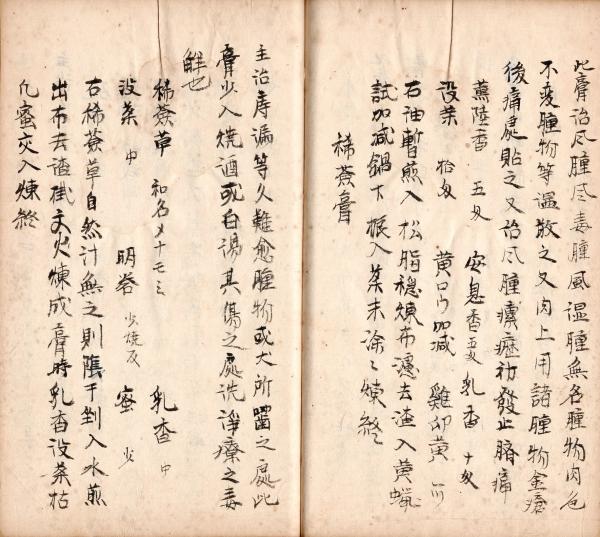 此膏治風腫風毒腫風湿腫無名腫物肉色
不変腫物等温散之又肉上用諸腫物金瘡
後痛處貼之又治風腫瘰癧初發止脇痛
薫陸香 五匁 安息香 五匁 乳香 十匁
没薬 拾匁 黄口 加减 雞卵黄
右油暫煎入松脂穏煉布濾去渣入黄蝋
試加减鍋下振入薬末涂々煉終
稀薟膏
主治痔漏等久難愈腫物或犬所囓之處此
膏少入焼酒或白湯其傷之處洗淨療之毒
解也
稀薟草 和名メナモミ 乳香 中
没薬 中 明礬 少焼反 蜜 少
右稀薟草自然汁無之則陰干剉入水煎
出布去渣掛文火煉成膏時乳香没薬枯
凢蜜灾入煉終